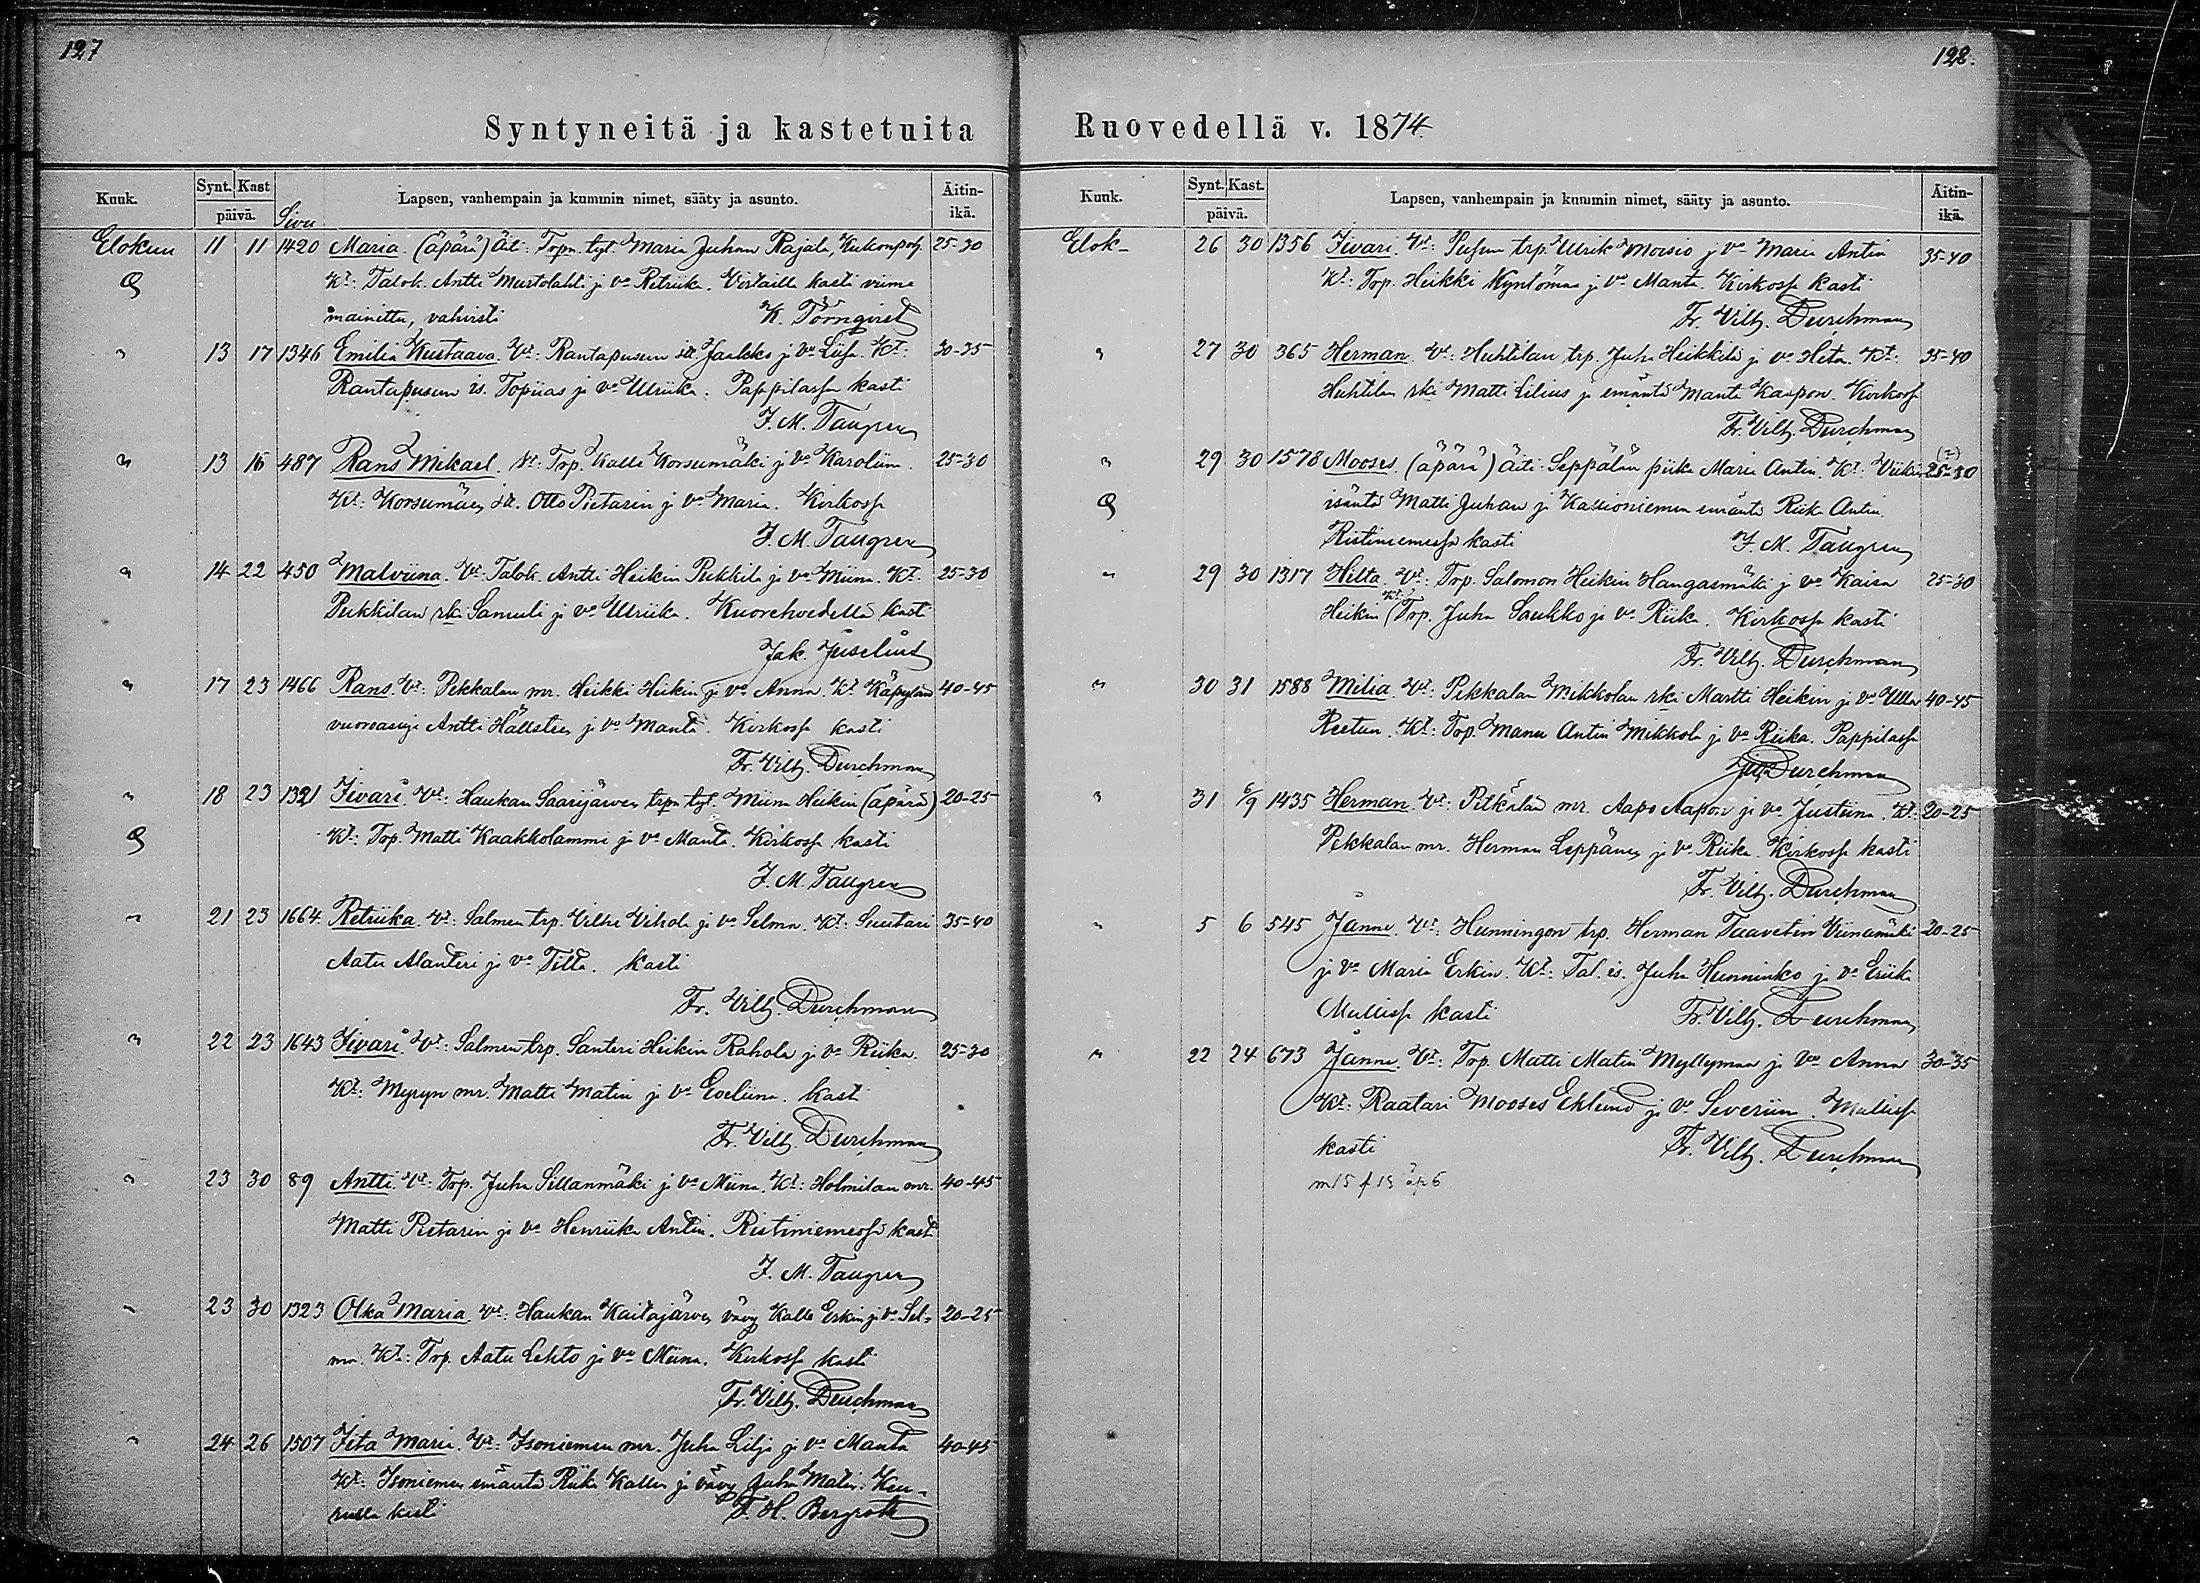 127
Syntyneitä ja kastetuita
Kuuk. Synt. Kast päivä. Sivu Lapsen, vanhempain ja kummin nimet, sääty ja asunto. Äitin-ikä.
Elokuu 11 11 1420 Maria (äpärä) Äit: Torpn tyt. Maria Juhan Rajala, 25-30
Kt: Talok. Antti Mustolahti j vo Retriika. Virtailla kasti viime
mainittu, vahvisti K. Törnqvist
" 13 17 1346 Emilia Kustaava. Vt: Rantapusun itt. Jaakko j vo Liisa. Kt: 30-35
Rantapusun is. Topiias j vo Ulriika. Pappilassa kasti
J. M. Taugren
" 13 16 487 Rans Mikael. Vt: Trp. Kalle Korsumäki j vo Karoliina. 25-30
Kt: Korsumäen itt. Otto Pietarin j vo Maria. Kirkossa
J. M. Taugren
" 14 22 450 Malviina. Vt: Talok. Antti Heikin Pukkila j vo Miina. Kt: 25-30
Pukkilan rki Samuli j vo Ulriika. Kuorehvedellä kast
Jak. Juselius
" 17 23 1466 Rans. Vt: Pekkalan mr. Heikki Heikin j vo Anna. Kt: Käpylän 40-45
vuoroasuja Antti Hällsten j vo Manta. Kirkossa kasti
Fr. Vilh. Durchman
" 18 23 1321 Iivari. Vt: Haukan Saarijärven trpn tyt. Miina Heikin (äpärä) 20-25
Kt: Trp. Matti Kaakkolammi j vo Manta. Kirkossa kasti
J. M. Taugren
" 21 23 1664 Retriika. Vt: Salmen trp. Vilhe Vihola j vo Selma. Kt: Suutari 35-40
Aatu Alanteri j vo Tilta. kasti
Fr. Vilh. Durchman
" 22 23 1643 Iivari. Vt: Salmen trp. Santeri Heikin Rahola j vo Riika. 25-30
Kt: Myryn mr. Matti Matin j vo Eveliina. kast
Fr. Vilh. Durchman
" 23 30 89 Antti. Vt: Trp. Juha Sillanmäki j vo Miina. Kt: Holmilan mr. 40-45
Matti Pietarin j vo Henriika Antin. Ristiniemessä kast
J. M. Taugren
" 23 30 1323 Olka Maria. Vt: Haukan Kaitajärven vävy Kalle Erkin j vo Sel- 20-25
ma. Kt: Trp. Aatu Lehto j vo Miina. Kirkossa kasti
Fr. Vilh. Durchman
" 24 26 1507 Iita Maria. Vt: Isoniemen mr. Juha Lilja j vo Manta 40-45
Kt: Isoniemen emäntä Riika Kallen j vävy Juha Matin. Keu-
rulla kasti F. H. Bergroth
128.
Ruovedellä v. 1874.
Kuuk. Synt. Kast. päivä. Lapsen, vanhempain ja kummin nimet, sääty ja asunto. Äitin-ikä.
Elok- 26 30 1356 Iivari. Vt: trp. Ulrik Moisio j vo Maria Antin 35-40
Kt: Trp. Heikki Kyntömaa j vo Manta. Kirkossa kasti
Fr. Vilh. Durchman
" 27 30 365 Herman. Vt: Huhtilan trp. Juha Heikkilä j vo Heta. Kt: 35-40
Huhtilan rki Matti Lilius j emäntä Manta Kaapon. Kirkossa
Fr. Vilh. Durchman
" 29 30 1578 Mooses. (äpärä) Äiti: Seppälän piika Maria Antin. Kt: (?) 25-30
isäntä Matti Juhan j Kallioniemen emäntä Riika Antin.
Ristiniemessä kasti J. M. Taugren
" 29 30 1317 Hilta. Vt: Trp. Salomon Heikin Hangasmäki j vo Kaisa 25-30
Heikin (Kt: Trp. Juha Saukko j vo Riika. Kirkossa kasti
Fr. Vilh. Durchman
" 30 31 1588 Milia. Vt: Pekkalan Mikkolan rki Martti Heikin j vo Ulla 40-45
Reetun. Kt: Trp. Manu Antin Mikkola j vo Riika. Pappilassa
Durchman
" 31 6/9 1435 Herman. Vt: Pitkälän mr. Aapo Aapon j vo Justiina. Kt: 20-25
Pekkalan mr. Herman Leppänen j vo Riika. Kirkossa kasti
Fr. Vilh. Durchman
" 5 6 545 Janne. Vt: Hunningon trp. Herman Taavetin Viinamäki 20-25
j vo Maria Erkin. Kt: Tal. is. Juha Hunninko j vo Eriika
kasti Fr. Vilh. Durchman
" 22 24 673 Janne. Vt: Trp. Matti Matin Myllymaa j vo Anna 30-35
Kt: Raatari Mooses Eklund j vo Severiina.
kasti Fr. Vilh. Durchman
m 15 f 15 äp 6